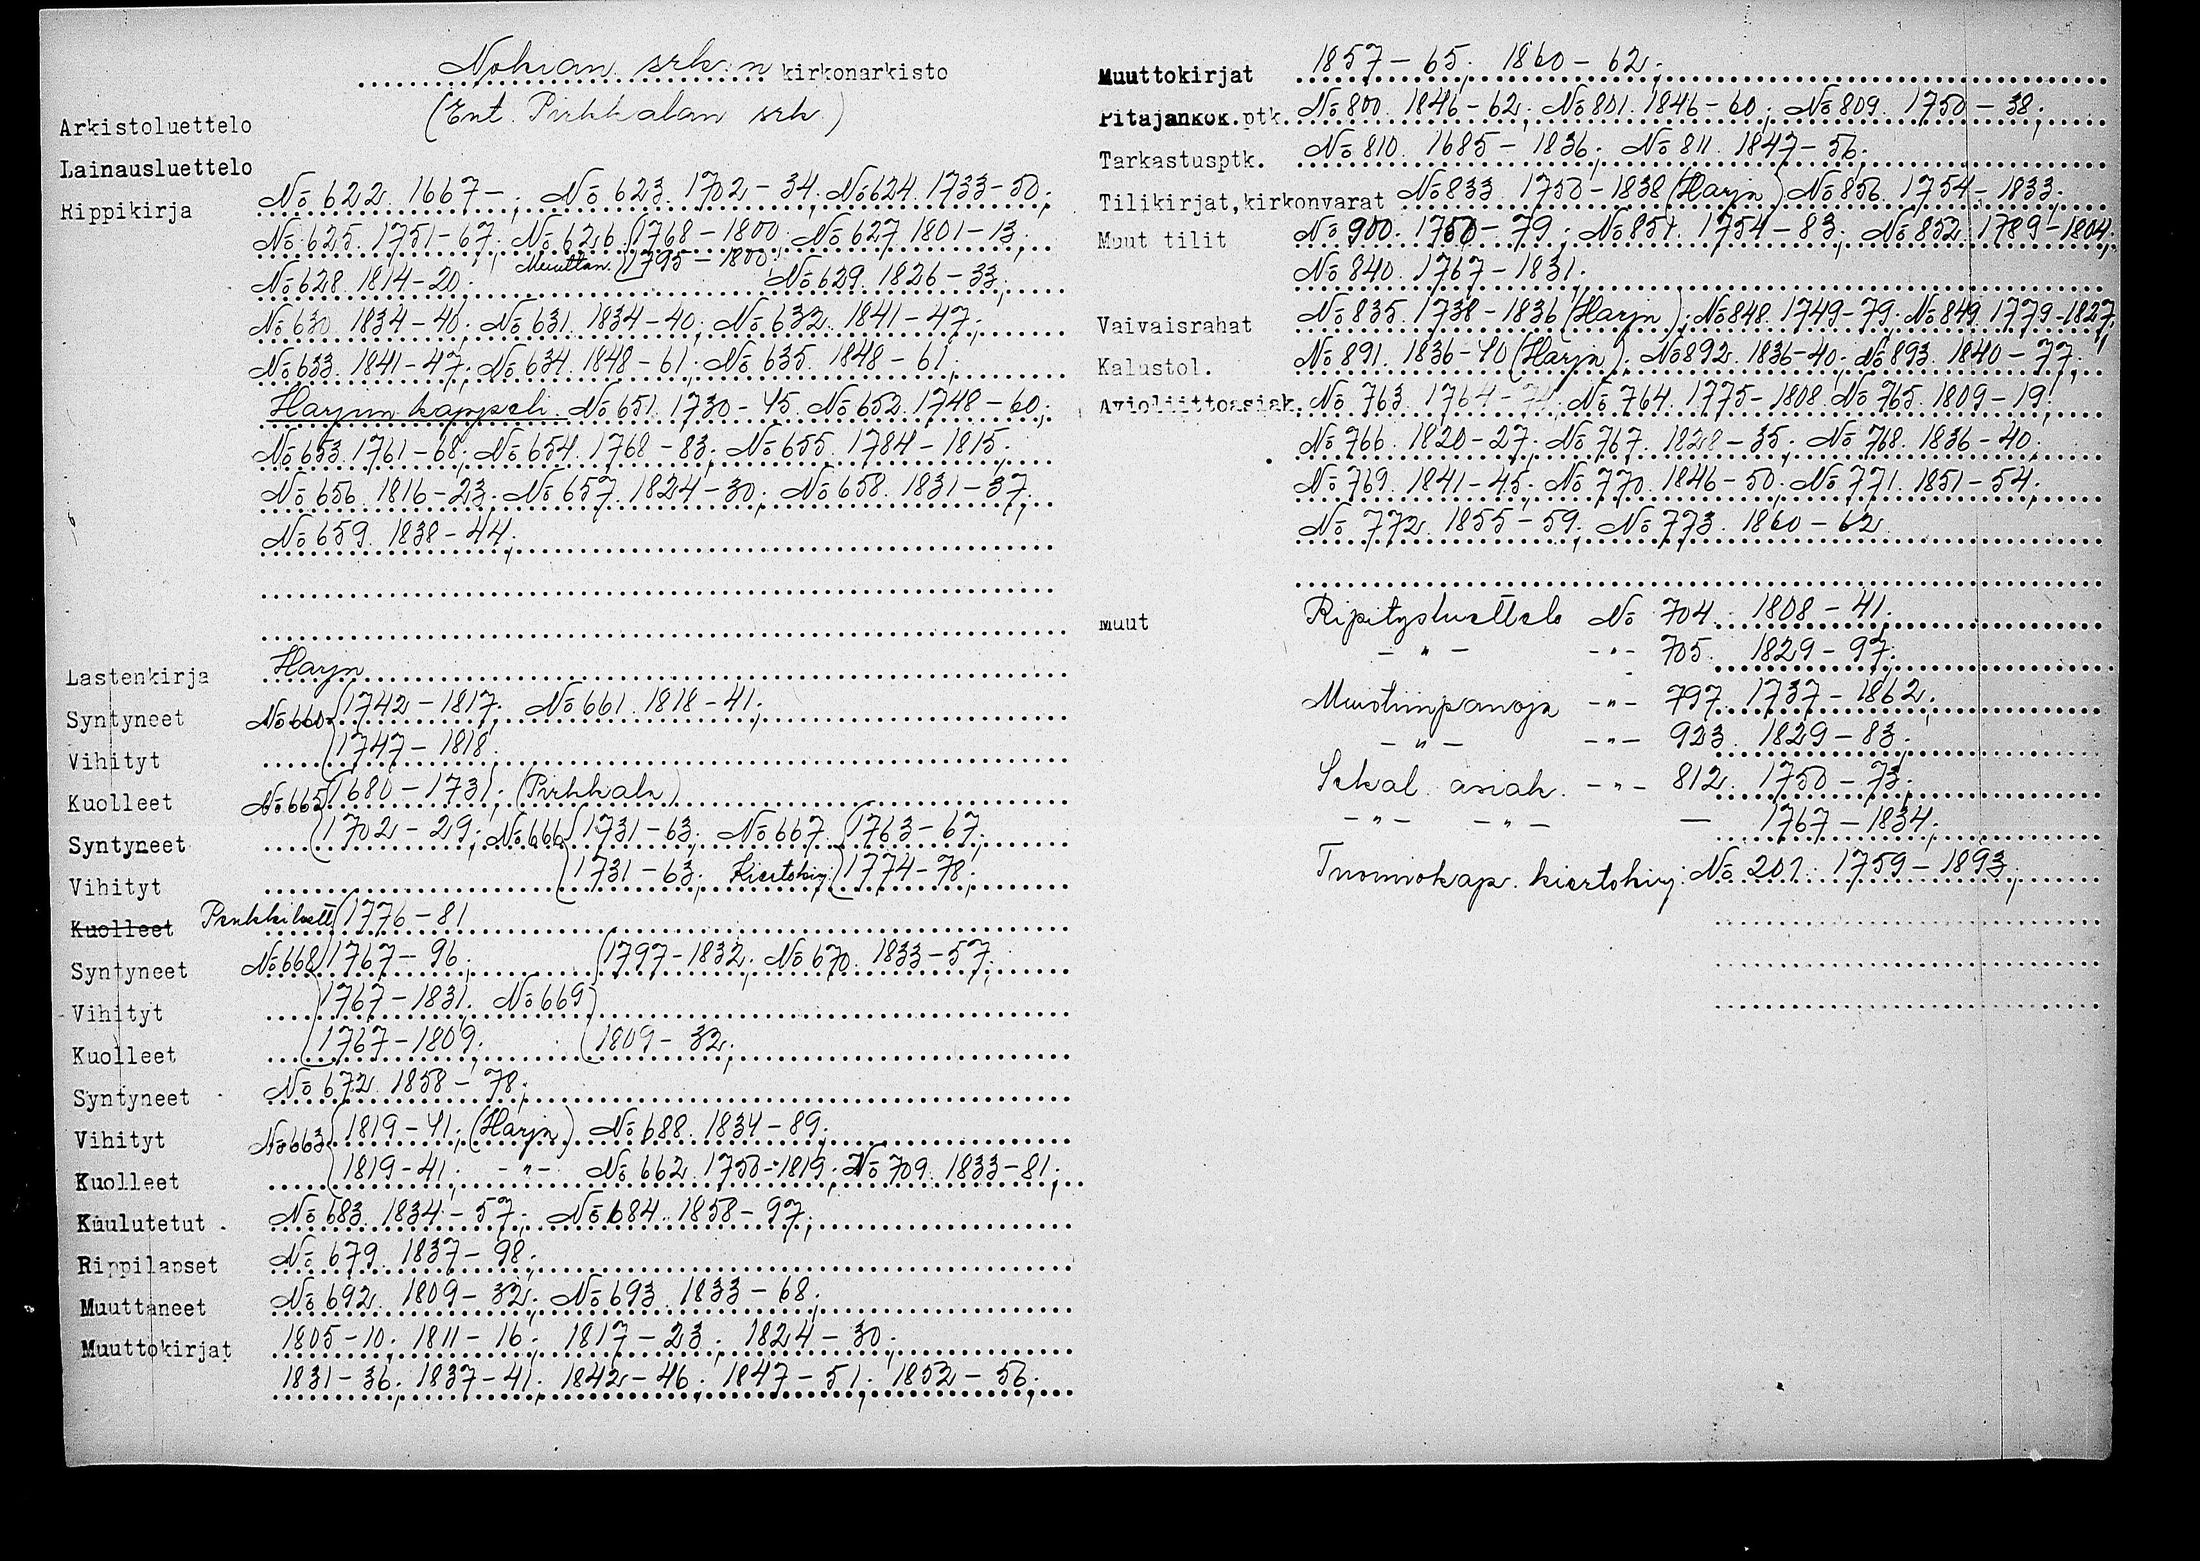 Nokian srk:n kirkonarkisto
(Ent. Pirkkalan srk.)
Arkistoluettelo
Lainausluettelo
Rippikirja No 622. 1667- ; No 623. 1702-34; No 624. 1733-50;
No 625. 1751-67; No 626. (1768-1800; No 627. 1801-13;
No 628. 1814-20; Muuttan. (1795-1800; No 629. 1826-33;
No 630. 1834-40; No 631. 1834-40; No 632. 1841-47;
No 633. 1841-47; No 634. 1848-61; No 635. 1848-61;
Harjun kappeli. No 651. 1730-45. No 652. 1748-60;
No 653. 1761-68; No 654. 1768-83; No 655. 1784-1815;
No 656. 1816-23; No 657. 1824-30; No 658. 1831-37;
No 659. 1838-44;
Lastenkirja Harju
Syntyneet No 660 (1742-1817; No 661. 1818-41;
Vihityt (1747-1818.
Kuolleet No 665 (1680-1731; (Pirkkala)
Syntyneet (1702-29; No 666 (1731-63; No 667. (1763-67;
Vihityt (1731-63; Kiertokirj. (1774-78;
Kuolleet Penkkiluett. (1776-81
Syntyneet No 668 (1767-96; (1797-1832; No 670. 1833-57;
Vihityt (1767-1831. No 669
Kuolleet (1767-1809; (1809-32;
Syntyneet No 672. 1858-78;
Vihityt No 663 (1819-41; (Harju) No 688. 1834-89;
Kuolleet (1819-41; -"- No 662. 1750-1819; No 709. 1833-81;
Kuulutetut No 683. 1834-57; No 684. 1858-97;
Rippilapset No 679. 1837-98;
Muuttaneet No 692. 1809-32; No 693. 1833-68;
Muuttokirjat 1805-10; 1811-16; 1817-23; 1824-30;
1831-36; 1837-41; 1842-46; 1847-51; 1852-56;
Muuttokirjat 1857-65; 1860-62;
Pitäjänkok.ptk. No 800. 1846-62; No 801. 1846-60; No 809. 1750-38;
Tarkastusptk. No 810. 1685-1836; No 811. 1847-56;
Tilikirjat,kirkonvarat No 833. 1750-1838 (Harju) No 856. 1754-1833;
Muut tilit No 900. 1760-79; No 851. 1754-83; No 852. 1789-1804;
No 840. 1767-1831;
Vaivaisrahat No 835. 1738-1836 (Harju); No 848. 1749-79; No 849. 1779-1827;
Kalustol. No 891. 1836-40 (Harju); No 892. 1836-40; No 893. 1840-77;
Avioliittoasiak. No 763. 1764-74; No 764. 1775-1808. No 765. 1809-19;
No 766. 1820-27; No 767. 1828-35; No 768. 1836-40;
No 769. 1841-45; No 770. 1846-50; No 771. 1851-54;
No 772. 1855-59; No 773. 1860-62
muut Ripitysluettelo No 704. 1808-41.
-"- -"- 705. 1829-97;
Muistiinpanoja -"- 797. 1737-1862;
-"- -"- 923. 1829-83;
Sekal. asiak. -"- 812. 1750-73;
-"- -"- — 1767-1834;
Tuomiokap. kiertokirj. No 201. 1759-1893;